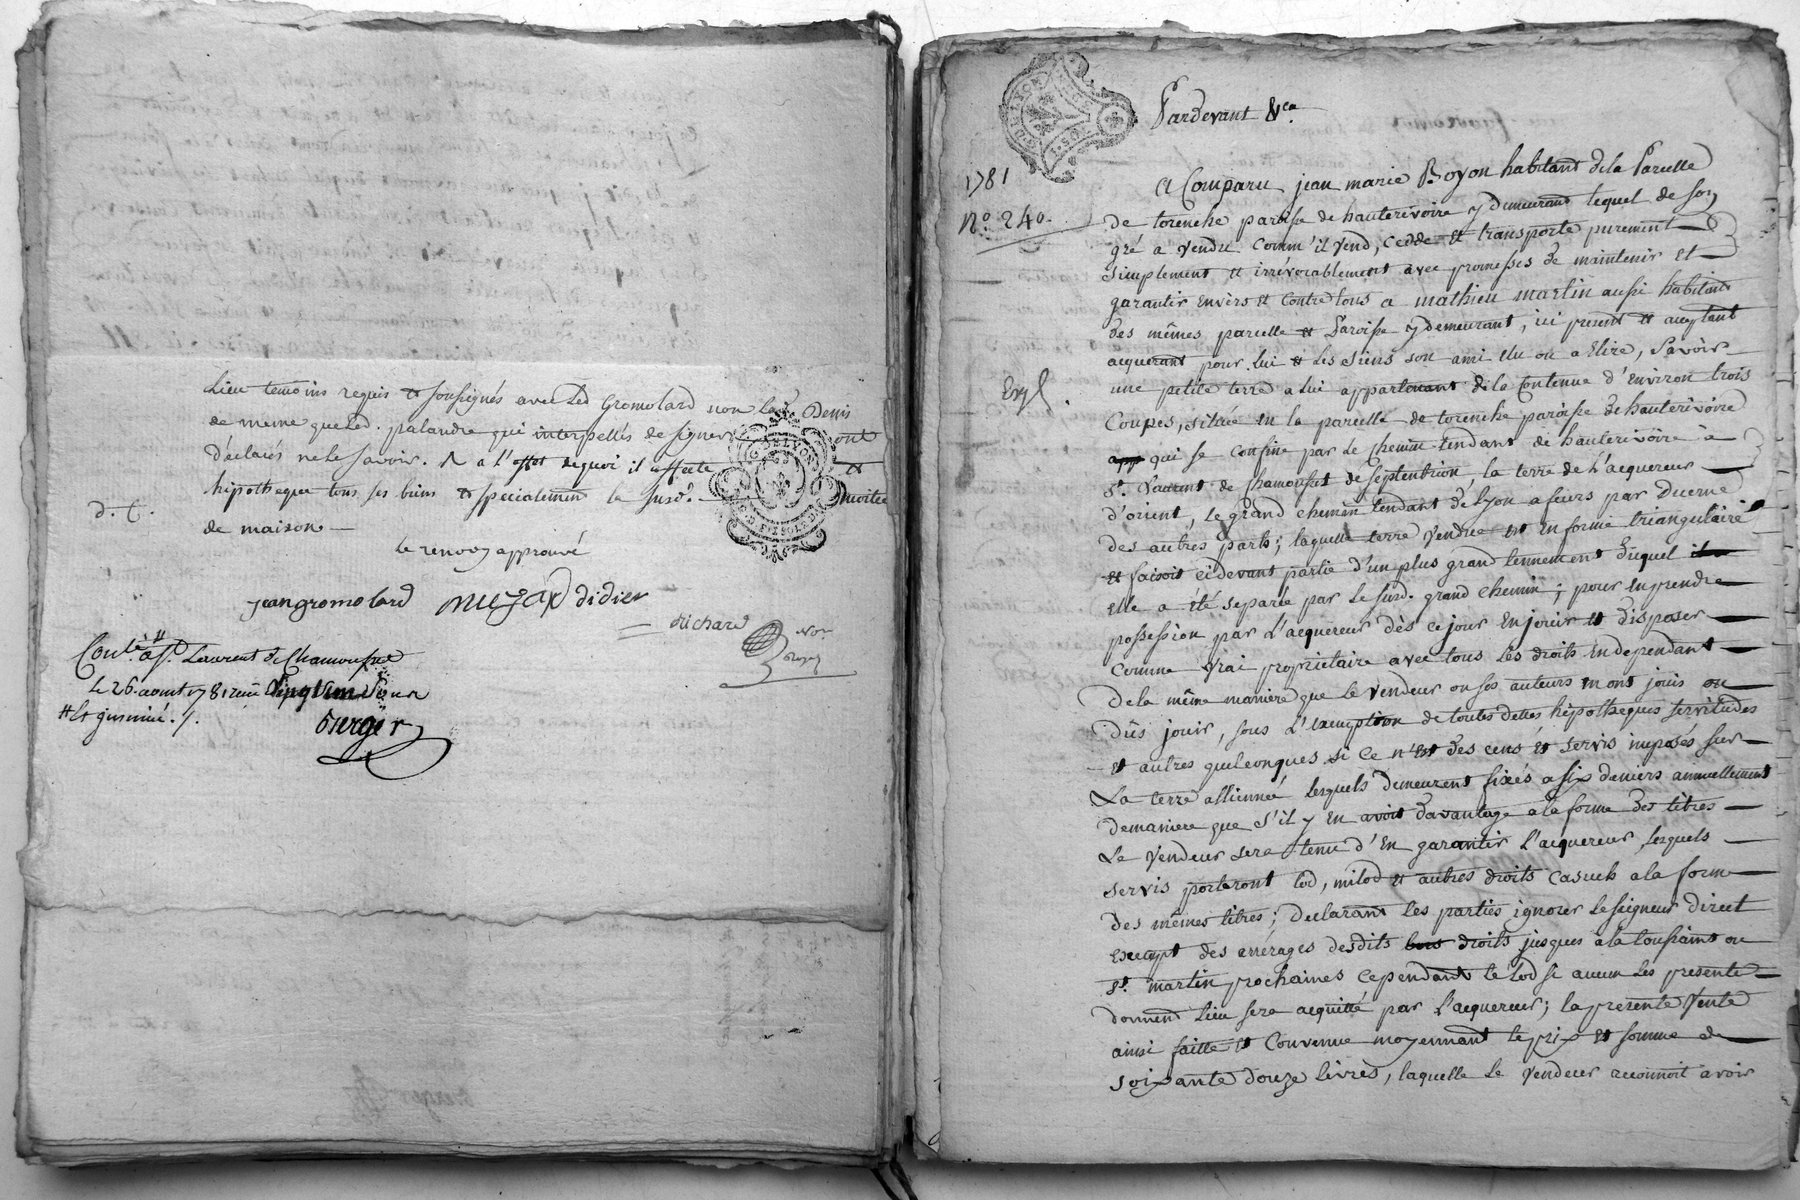 Lieu temoins requis et soussignés avec Led Gromolard non led. Denis
de meme que Led. palandre qui interpellés de signer ont
déclarés ne le savoir. A l'effet de quoi il affecte et
hipotheque tous ses biens et specialement la susd. moitié
d. C.
de maison
Le renvoy approuvé
jean gromolard didier
Richard Nore
Conlé à St. Laurent de Chamousset
Le 26 aout 1781 reçu Cinq
Berger
Pardevant &ca.
1781
N.o 240.
A Comparu jean marie Royon habitant de la Parcelle
de torenche paroisse de hauterivoire y demeurant lequel de son
gré a vendu comm'il vend, cedde et transporte purement
simplement et irrévocablement avec promesses de maintenir et
garantir envers et contre tous a mathieu martin aussi habitant
des mêmes parcelle et Paroisse y demeurant, ici present et acceptant
acquerant pour lui et les siens son ami elu ou a Elire, Savoir
Expl.
une petite terre a lui appartenant de la Contenue d'Environ trois
Coupes, située en la parcelle de torenche paroisse de hauterivoire
qui se confine par le chemin tendant de hauterivoire à
St. Laurent de Chamousset de septentrion, la terre de L'acquereur
d'orient, le grand chemin tendant de Lyon a feurs par Duerne
des autres parts; laquelle terre vendue est en forme triangulaire
et faisoit cidevant partie d'un plus grand tennement duquel
elle a été separée par le susd. grand chemin; pour en prendre
possession par L'acquereur dès ce jour En jouir et disposer
comme vrai propriétaire avec tous les droits En dependant
de la même maniere que le vendeur ou ses auteurs en ont jouis ou
dûs jouir, sous L'exemption de toutes dettes hipotheques servitudes
et autres quelconques si ce n'est des cens et servis imposés sur
La terre alliennée Lesquels demeurent fixés a six deniers annuellement
de maniere que s'il y En avoit davantage a la forme des titres
Le vendeur sera tenu d'En garantir L'acquereur, lesquels
servis porteront lod, milod et autres droits casuels a la forme
des mêmes titres; declarant les parties ignorer le seigneur direct
excapt des arrérages desdits droits jusques a la toussaint ou
St. martin prochaines cependant le lod si aucun les presente
donnent Lieu sera acquitté par L'acquereur; la presente vente
ainsi faitte et Convenue moyennant le prix et somme de
soixante douze livres, laquelle le vendeur reconnoit avoir